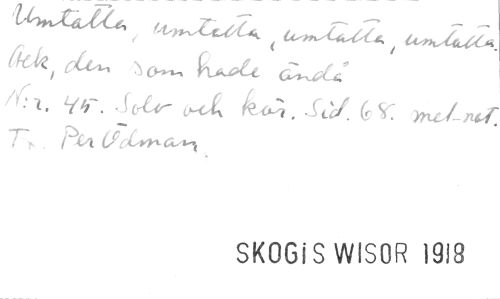 Umtatta, umtatta, umtatta, umtatta.
Ack, den som hade ändå
N:r. 45. Solo och kör. Sid. 68. mel-not.
Tx. Per Ödman.
SKOGIS WISOR 1918